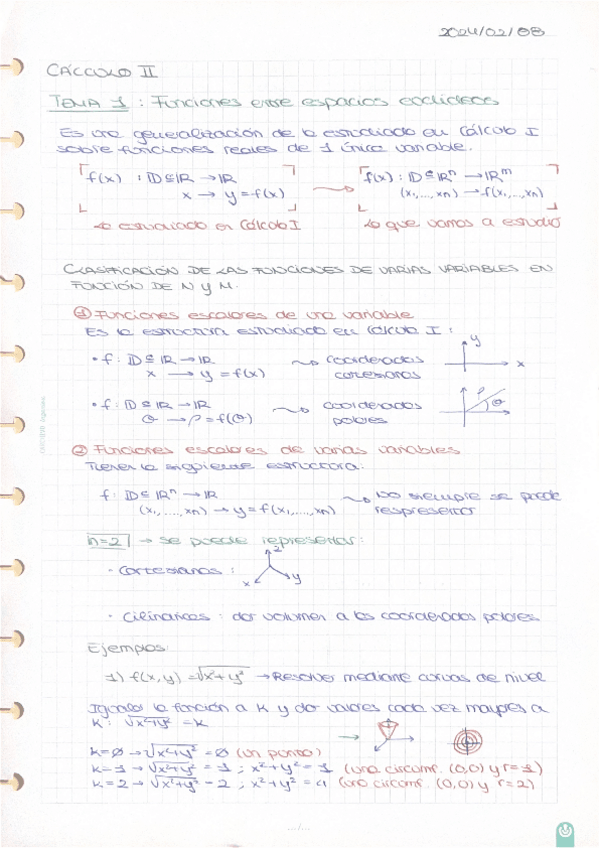 2024/02/08
CÁLCULO II
TEMA 1 : Funciones entre espacios euclídeos
Es una generalización de lo estudiado en Cálculo I
sobre funciones reales de 1 única variable.
f(x) : D ⊆ ℝ → ℝ
x → y = f(x)
f(x) : D ⊆ ℝⁿ → ℝᵐ
(x₁,...,xn) → f(x₁,...,xn)
Lo estudiado en Cálculo I
Lo que vamos a estudio
CLASIFICACIÓN DE LAS FUNCIONES DE VARIAS VARIABLES EN
FUNCIÓN DE N y M.
① Funciones escalares de una variable
Es la estructura estudiada en Cálculo I :
• f : D ⊆ ℝ → ℝ
x → y = f(x)
coordenadas
cartesianas
y
x
• f : D ⊆ ℝ → ℝ
θ → ρ = f(θ)
coordenadas
polares
ρ
θ
② Funciones escalares de varias variables
Tienen la siguiente estructura:
f : D ⊆ ℝⁿ → ℝ
(x₁,....,xn) → y = f(x₁,....,xn)
No siempre se puede
respresentar
n=2 → se puede representar:
· Cartesianas :
z
x
y
· Cilíndricas : dar volumen a las coordenadas polares
Ejemplos:
1) f(x,y) = √x²+y² → Resolver mediante curvas de nivel
Igualar la función a K y dar valores cada vez mayores a
K : √x²+y² = K
K=0 → √x²+y² = 0 (un punto)
K=1 → √x²+y² = 1 ; x²+y² = 1 (una circunf. (0,0) y r=1)
K=2 → √x²+y² = 2 ; x²+y² = 4 (una circunf. (0,0) y r=2)
.../...